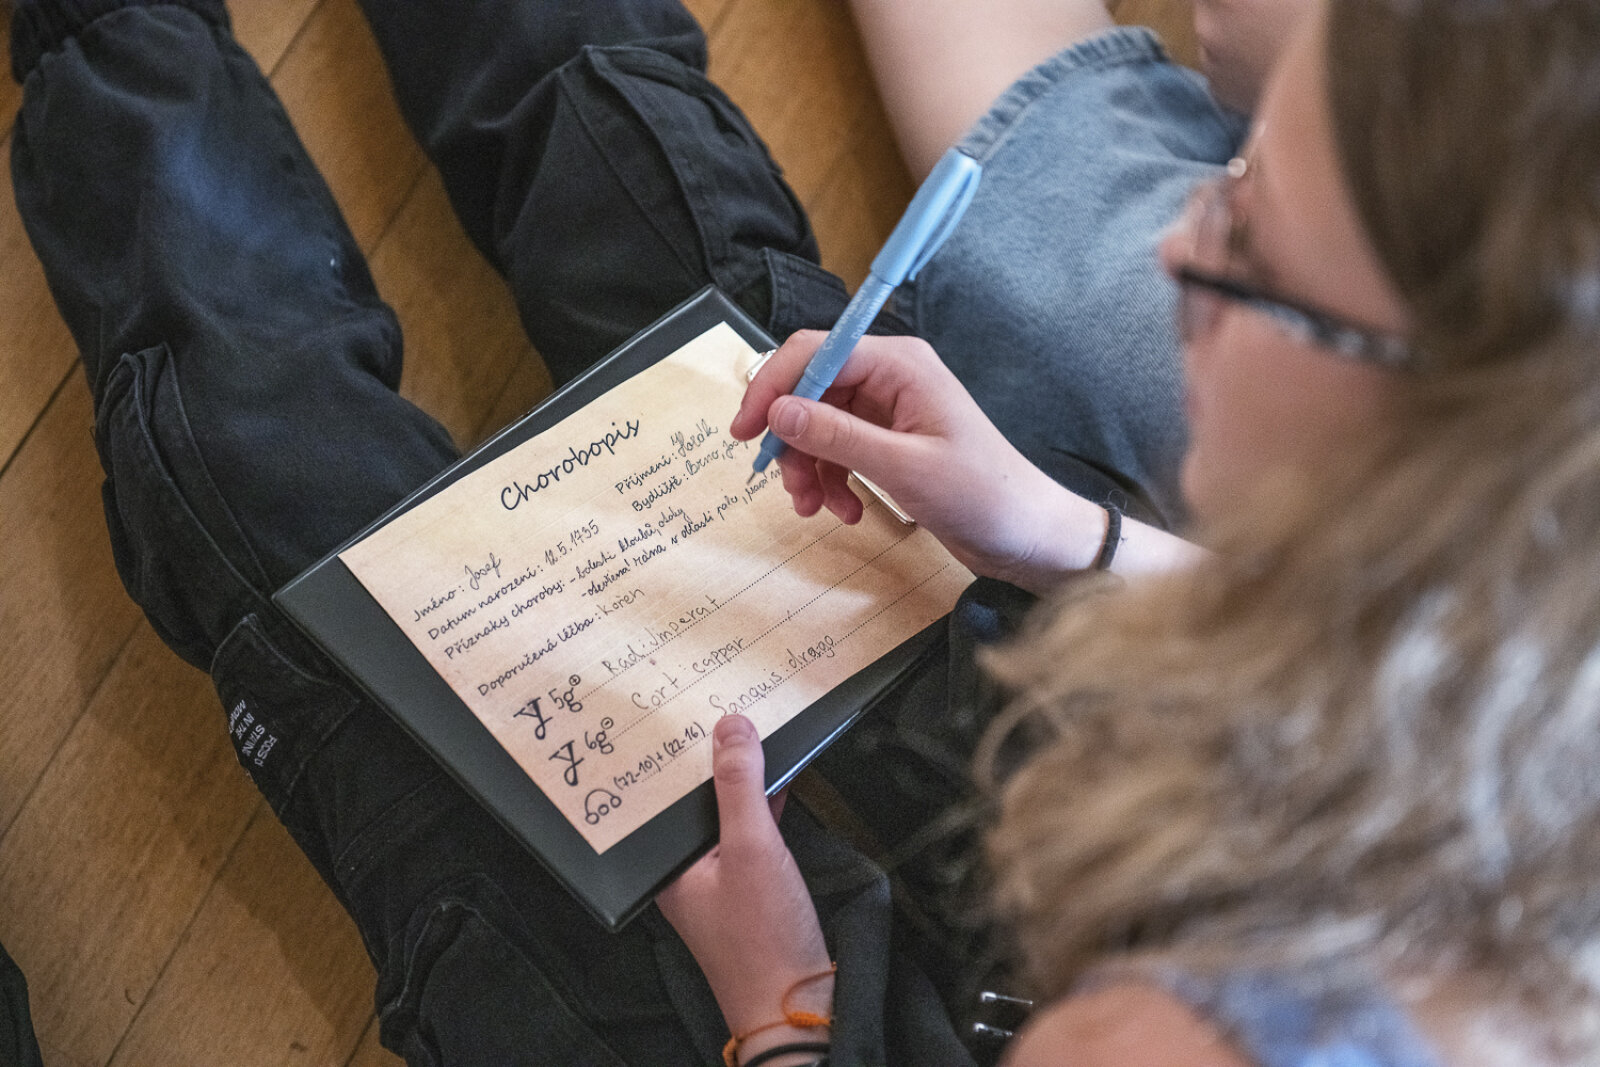 Chorobopis
Jméno: Josef Příjmení: Horák
Datum narození: 12.5.1735 Bydliště: Brno,
Příznaky choroby: - bolesti kloubů, otoky
- otevřená rána v oblasti
Doporučená léčba: Kořen
5g⊕ Rad. Imperat
6g⊖ Cort. cappar
(72-10)+(22-16) Sanquis drage
FOCUS
IN THE